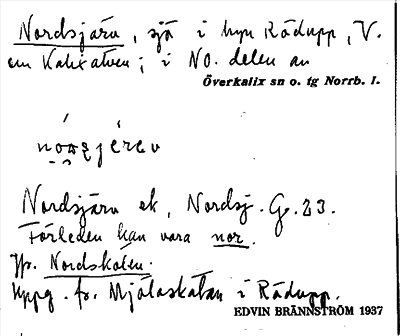 Nordsjärv, sjö i byn Rödupp, V.
om Kalixälven; i NO. delen av
Överkalix sn o. tg Norrb. l.
Nordsjärv ek, Nordsj. G. 23.
Förleden kan vara nor.
Jfr. Nordskölen.
Uppg. fr. Mjölaskatan i Rödupp.
EDVIN BRÄNNSTRÖM 1937